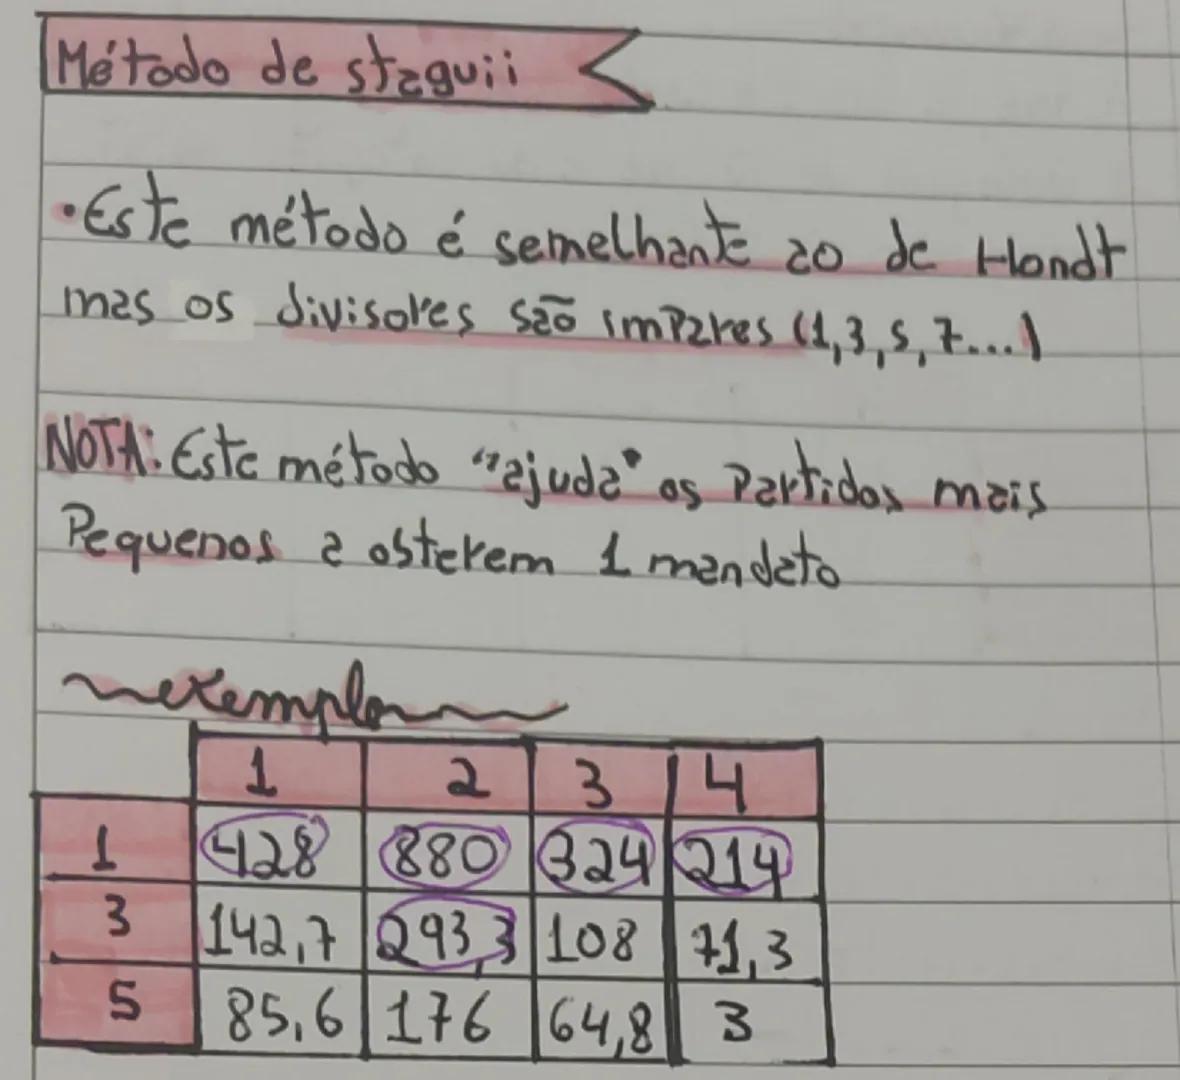 Método de staguii
•Este método é semelhante ao de Hondt
mas os divisores são ímpares (1,3,5,7...)
NOTA: Este método "ajuda" os Partidos mais
Pequenos a obterem 1 mandato
exemplo
1 2 3 4
1 428 880 324 214
3 142,7 293,3 108 71,3
5 85,6 176 64,8 3